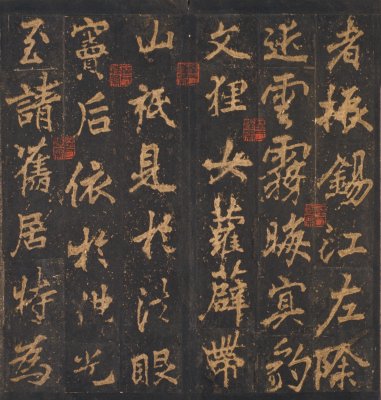 者振錫江左除
雲霧晦冥豹
文狸女蘿薜帶
山祇見於法眼
竇后依於神光
至請舊居特為